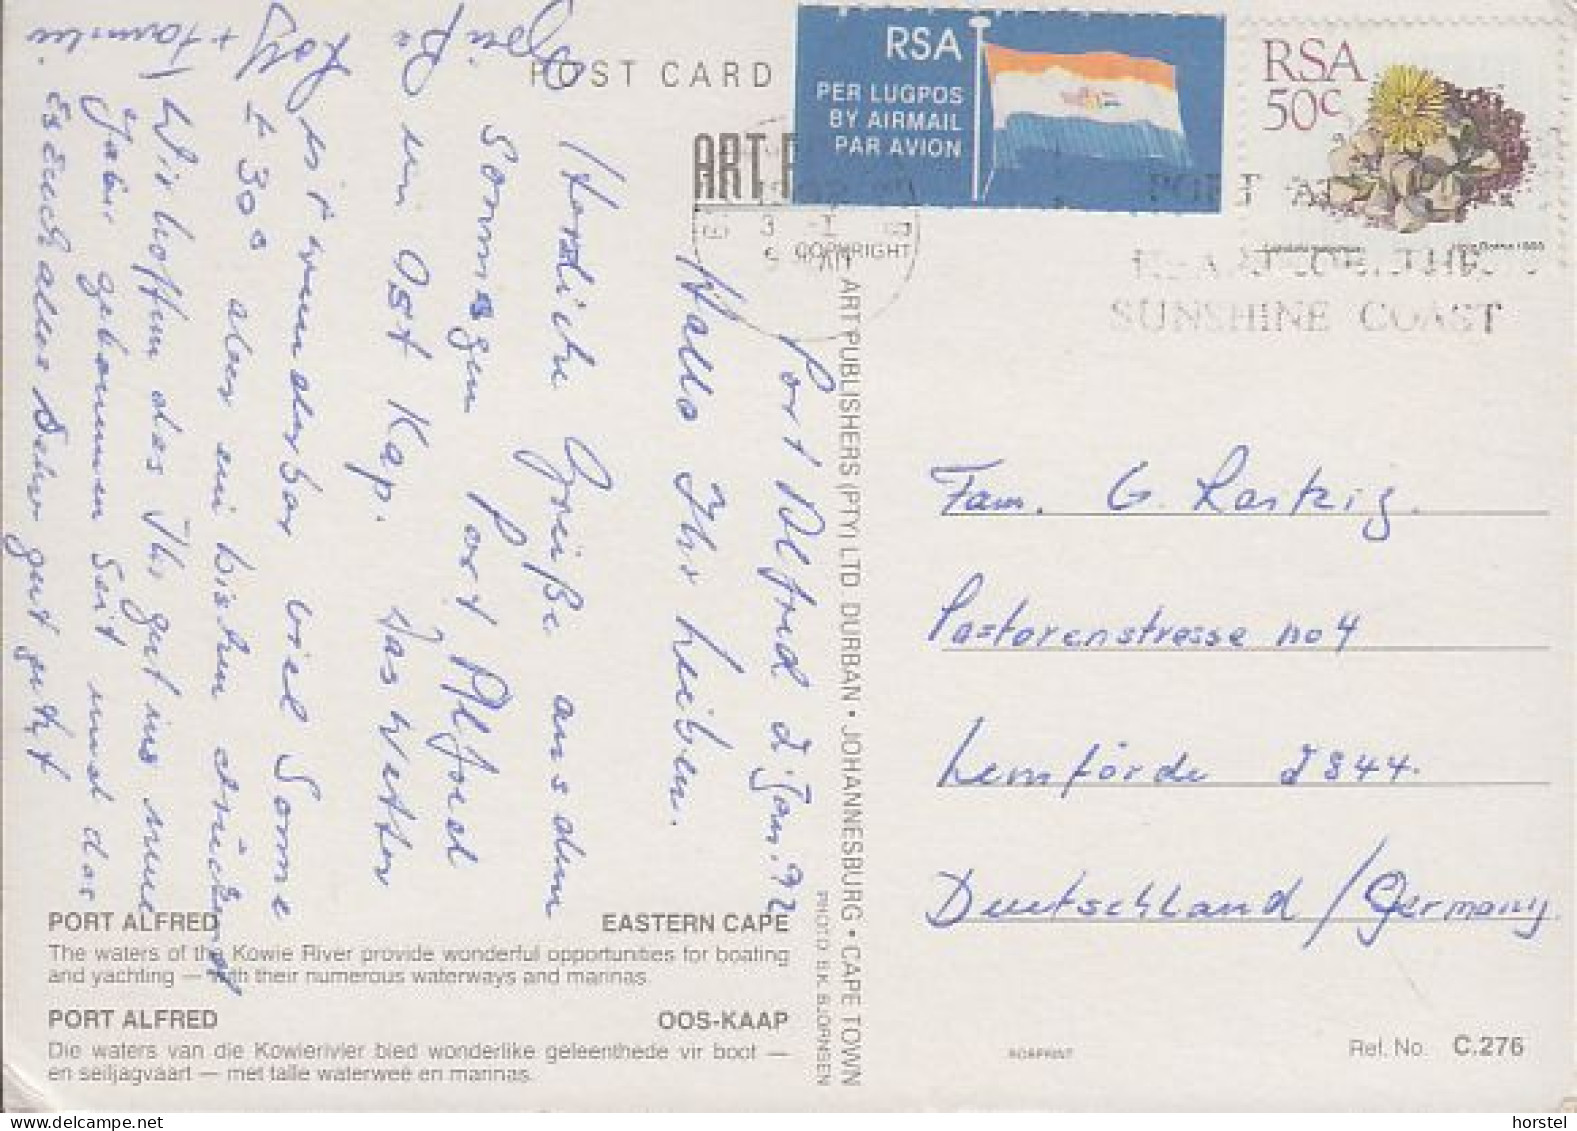 POST CARD
RSA
PER LUGPOS
BY AIRMAIL
PAR AVION
RSA
50c
ART P
COPYRIGHT
PORT AL
SUNSHINE COAST
Port Alfred 2 Jan. 92
Hallo Ihr Lieben.
Herdliche Grüße aus dem
Sonnigen Port Alfred
im Ost Kap. Das Wetter
ist wunderbar viel Sonne
+ 30° aber ein bischen drückend
Wir hoffen das Ihr gut ins neue
Jahr gekommen seit und das
es Euch alles sehr gut geht
Fam. G. Laskzig.
Pastorenstrasse no 4
Lemförde 2844.
Deutschland / Germany.
ART PUBLISHERS (PTY) LTD. DURBAN • JOHANNESBURG • CAPE TOWN
PHOTO B.K. BJORNSEN
PORT ALFRED EASTERN CAPE
The waters of the Kowie River provide wonderful opportunities for boating
and yachting — with their numerous waterways and marinas.
PORT ALFRED OOS-KAAP
Die waters van die Kowierivier bied wonderlike geleenthede vir boot —
en seiljagvaart — met talle waterweë en marinas.
Ref. No. C.276
horstel